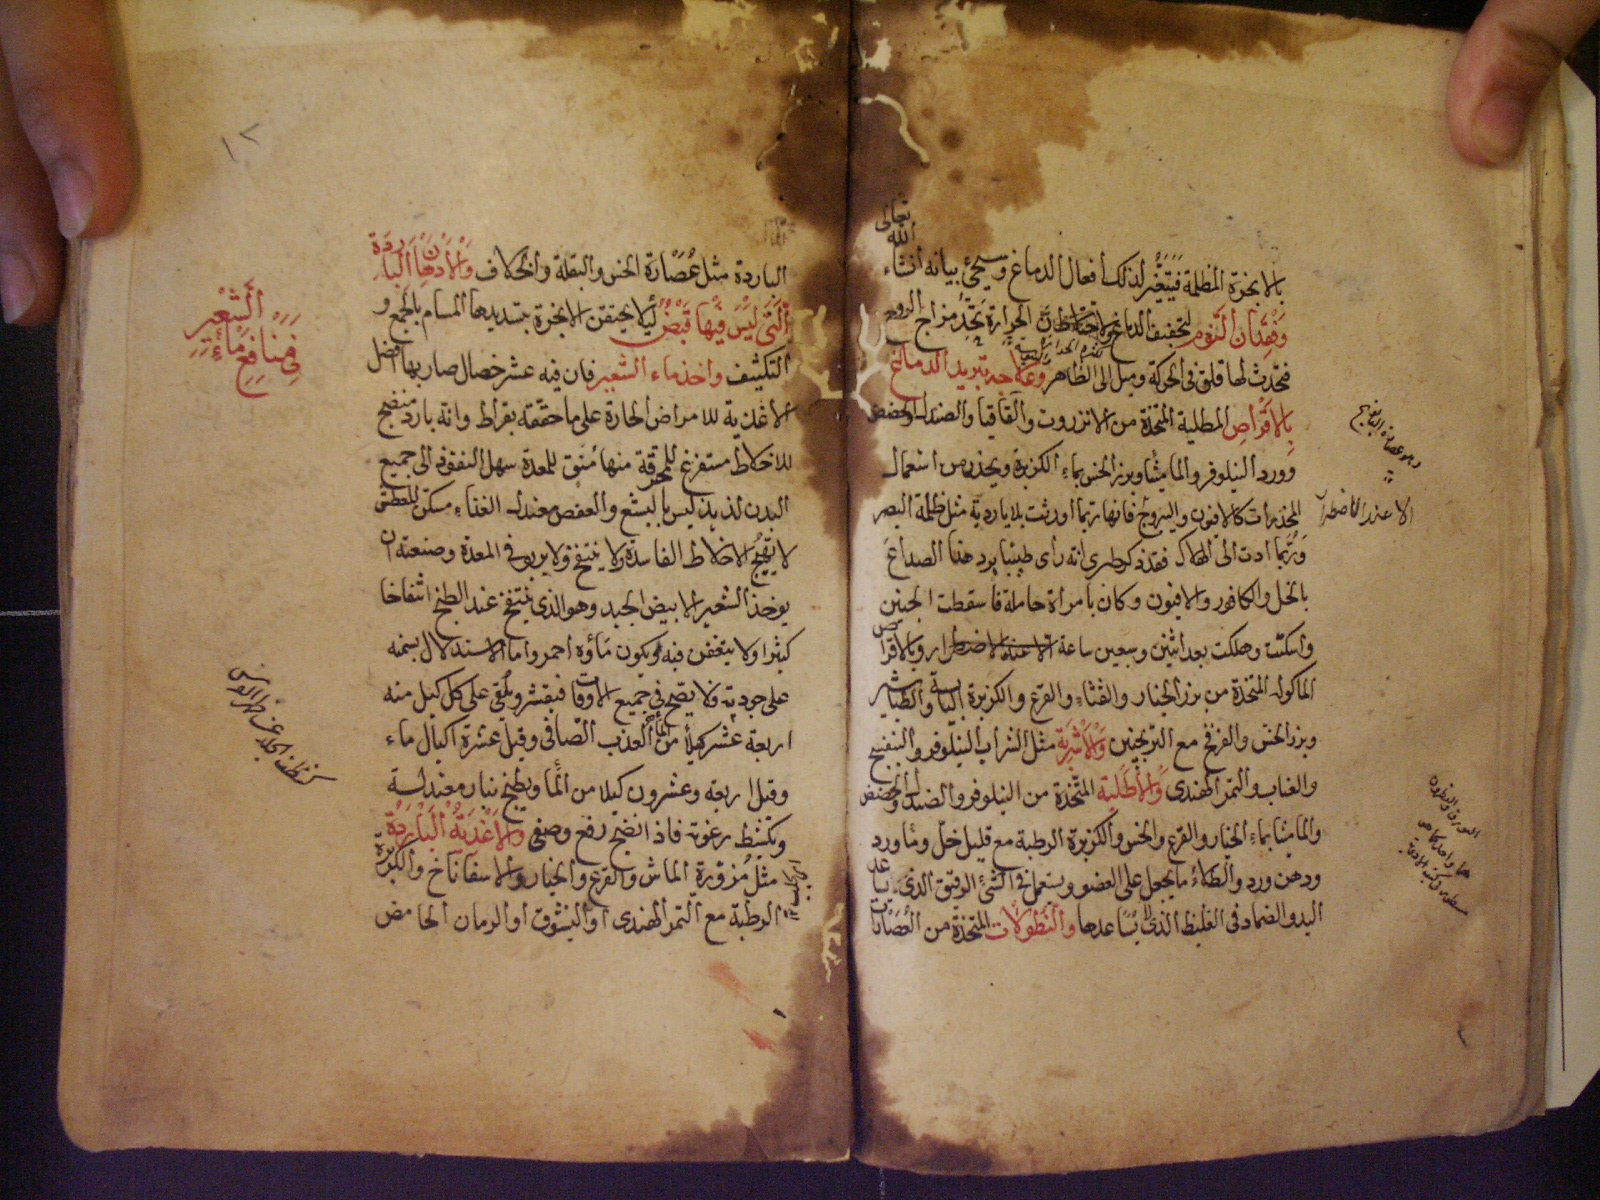 بالابخرة المظلمة فيتغير لذلك افعال الدماغ وسيجئ بيانه انشاء
الله تعالى
وفقدان النوم لتجفيف الدماغ الحرارة مزاج الروح
فتحدث لها قلق فى الحركة وميل الى الظاهر وعلاجه تبريد الدماغ
بالاقراص المطلية المتخذة من الانزروت والقاقيا والصندل والحضض
وورد النيلوفر والماميثا وبزر الخس بماء الكزبرة ويحذر من استعمال
المخدرات كالافيون واليبروج فانها ربما اورثت بلايا ردية مثل ظلمة البصر
وربما ادت الى الهلاك فقد ذكر طبرى انه راى طبيبا يرد هذا الصداع
بالخل والكافور والافيون وكان بامراة حاملة فاسقطت الجنين
واسكتت وهلكت بعد اثنين وسبعين ساعة الا عند الاضطرار وبالاقراص
الماكولة المتخذة من بزر الخيار والقثاء والقرع والكزبرة اليابسة والطباشير
وبزر الخس والفرفخ مع الترنجبين والاشربة مثل الشراب النيلوفر والبنفسج
والعناب والتمر الهندى والاطلية المتخذة من النيلوفر والصندل والحضض
والماميثا بماء الخيار والقرع والخس والكزبرة الرطبة مع قليل خل وماورد
ودهن ورد والطلاء ما يجعل على العضو ويستعمل فى الشئ الرقيق الذى يساعد
اليد والضماد فى الغليظ الذى لا يساعدها والنطولات المتخذة من العصارات
الا عند الاضطرار
١٢
الباردة مثل عصارة الخس والبقلة والخلاف والادهان الباردة
التى ليس فيها قبض لئلا يحتقن الابخرة بتسديدها المسام بالجمع و
التكثيف واخذ ماء الشعير فان فيه عشر خصال صار بها افضل
الاغذية للامراض الحارة على ما حققه بقراط وانه بارد منضج
للاخلاط مستفرغ للمحرقة منها منق للمعدة سهل النفوذ الى جميع
البدن لذيذ ليس بالبشع والعفص معتدل الغذاء مسكن للعطش
لا يهيج الاخلاط الفاسدة ولا ينتفخ ولا يربو فى المعدة وصنعته ان
يوخذ الشعير الابيض الجيد وهو الذى ينتفخ عند الطبخ انتفاخا
كثيرا ولا يتعفن فيه ويكون ماؤه احمر واما الاستدلال بسمنه
على جودته فلا يصح فى جميع الاوقات فيقشر ويلقى على كل كيل منه
اربعة عشر كيلا من الماء العذب الصافى وقيل عشرة اكيال ماء
وقيل اربعة وعشرون كيلا من الماء ويطبخ بنار معتدلة
ويكشط رغوته فاذا نضج رفع وصفى والاغذية الباردة
مثل مزورة الماش والقرع والخيار والاسفاناخ والكزبرة
الرطبة مع التمر الهندى او النيشوق او الرمان الحامض
فى منافع ماء
الشعير